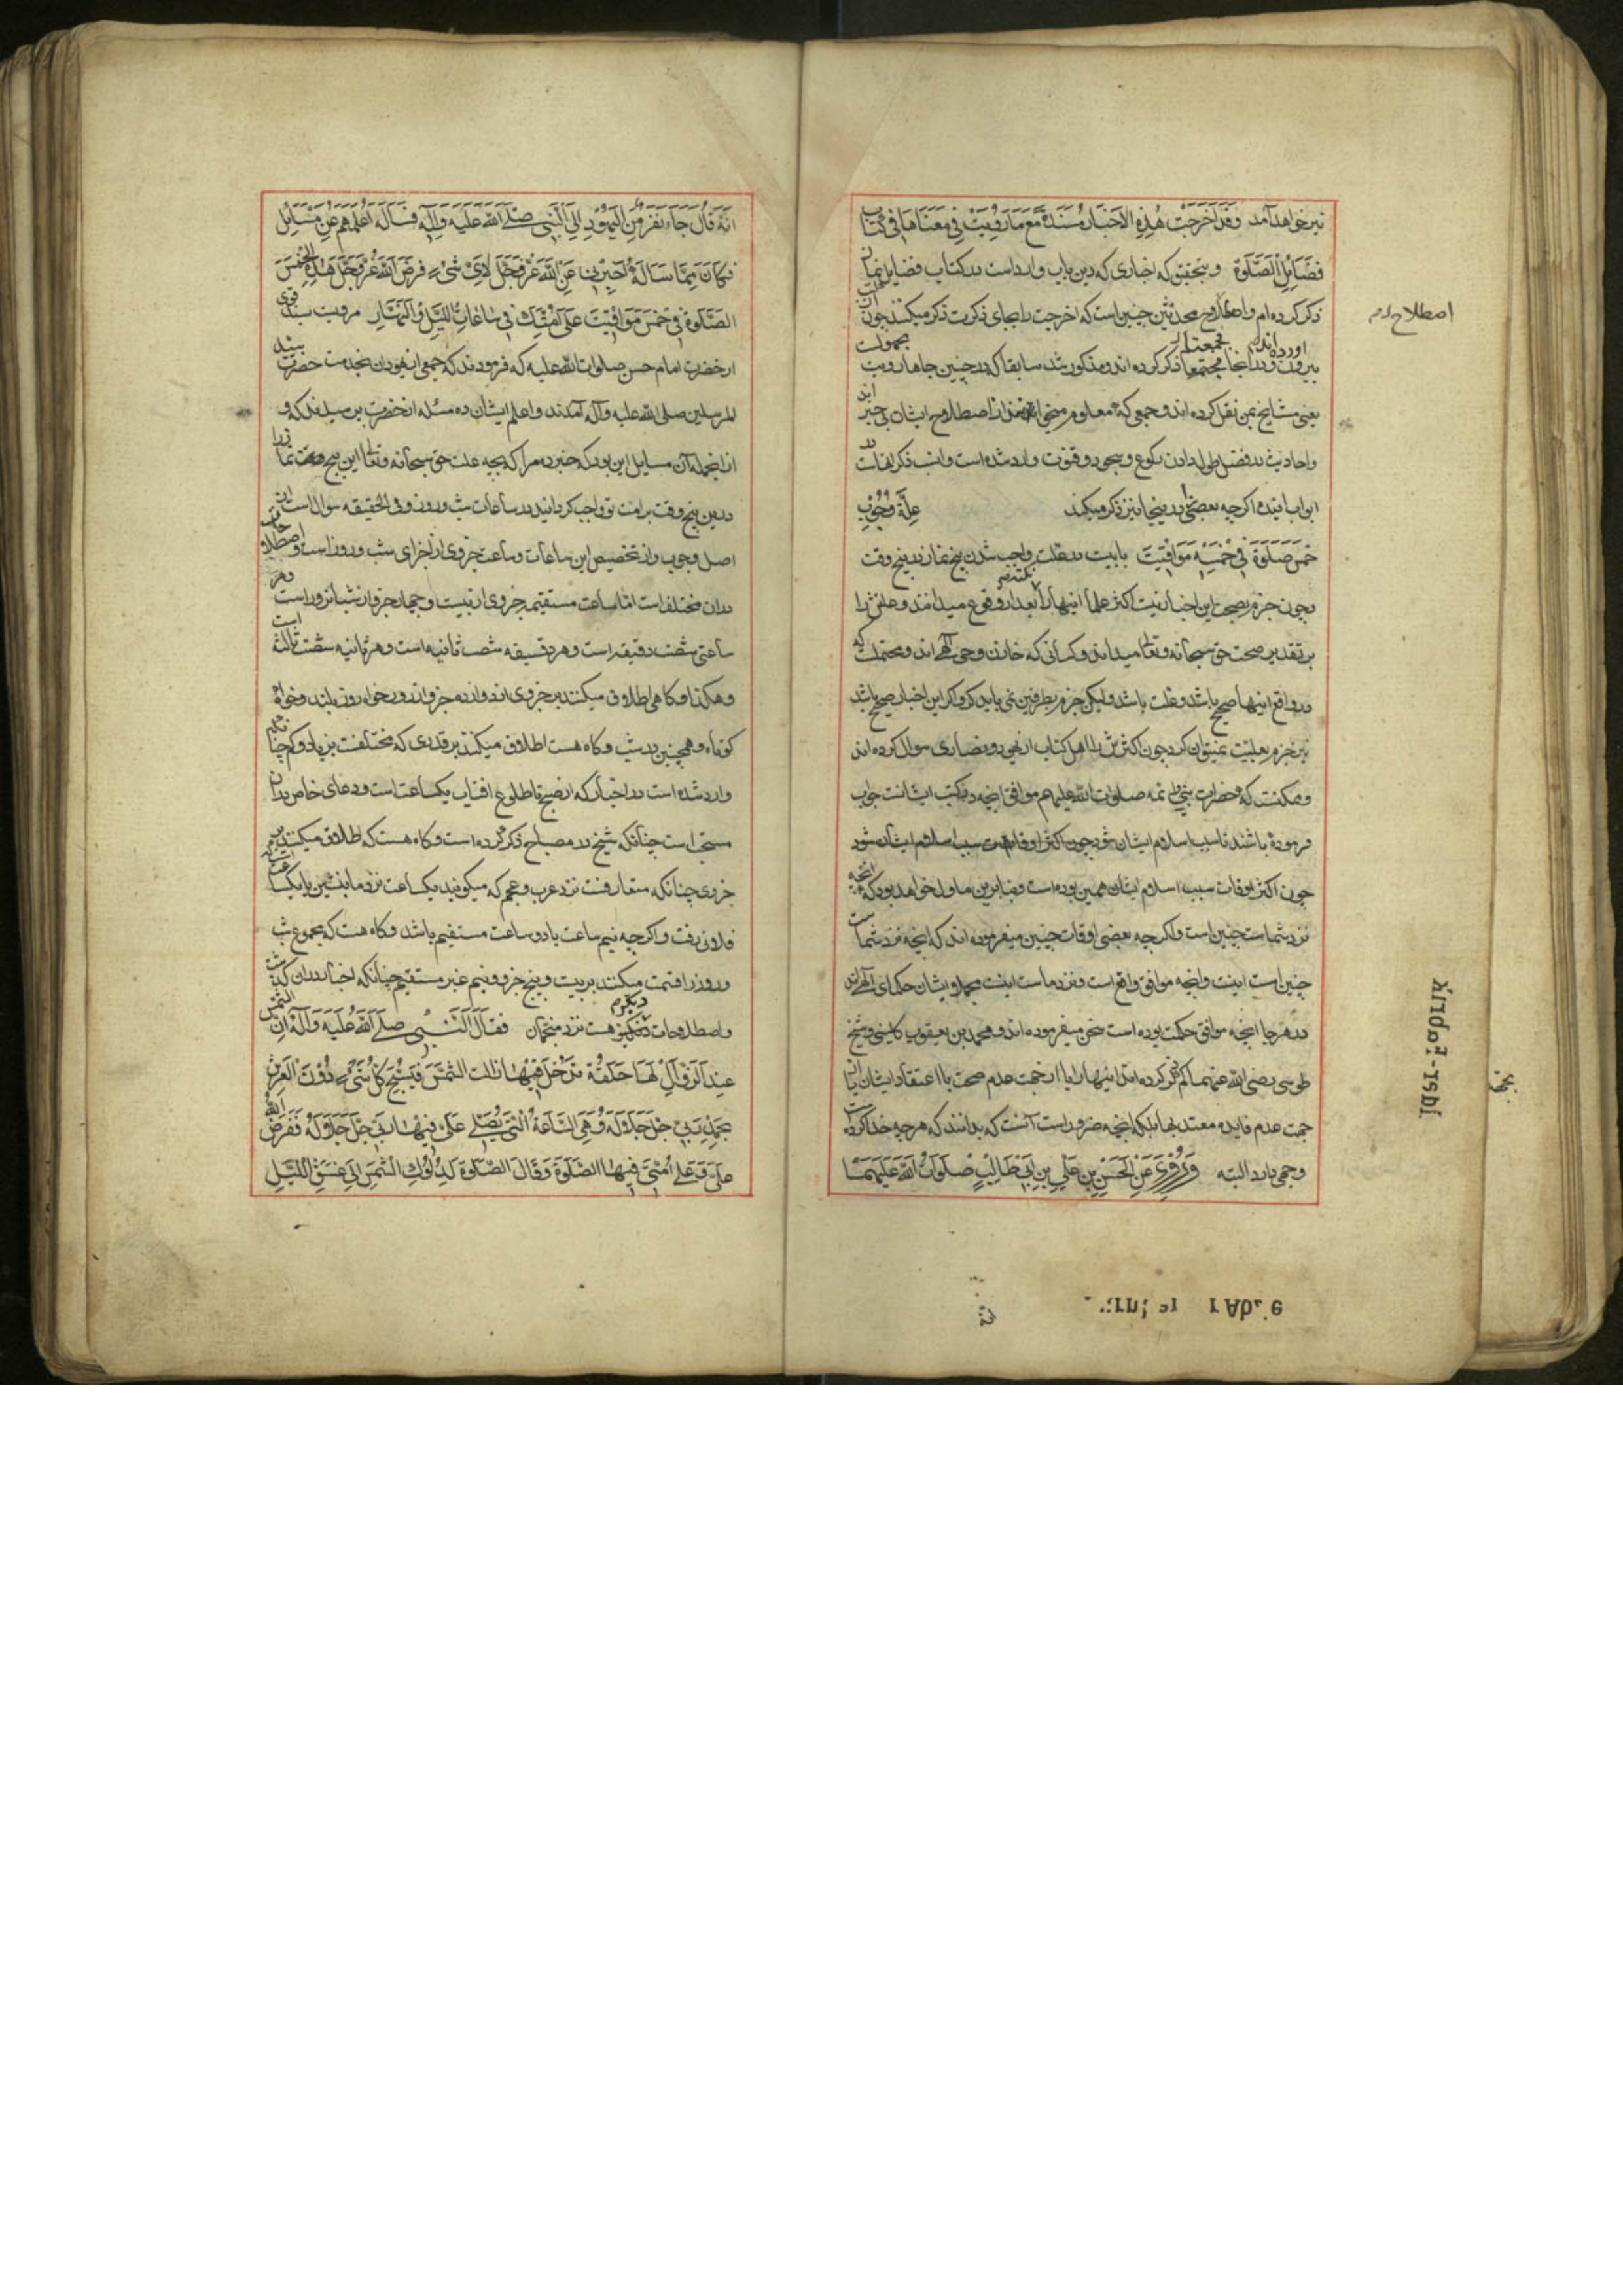 نیز خواهد آمد وَقَدْ اَخْرَجْتُ هٰذِهِ الْاَخْبَارَ مُسْنَدَةً مَعَ مَا رَوَیْتُ فِی مَعْنَاهَا فِی کِتَابِ
فَضَایِلِ الصَّلٰوةِ و بتحقیق که اخباری که درین باب وارد است در کتاب فضایل نماز
ذکر کرده ام و اصطلاح محدثین چنین است که اخرجت را بجای ذکرت ذکر میکنند چون
یعنی مشایخ بمن نقل کرده اند و جمعی که اصطلاح ایشان بی خبر
و احادیث در فضل طول دادن رکوع و سجود و قنوت وارد شده است و انسب ذکر
ابواب اینده اگر چه بعضی را در ینجا نیز ذکر میکند عِلَّةِ وُجُوبِ
خَمْسِ صَلَوٰةٍ فِی خَمْسَةِ مَوَاقِیتَ بابیست در علت واجب شدن پنج نماز در پنج وقت
و چون جزم بصحت این اخبار نیست اکثر علما اینها را بعد از وقوع میدانند و علتش را
بر تقدیر صحت حق سبحانه و تعالی میداند و کسانی که خازن وحی الهی اند و محتمل که
در واقع اینها صحیح باشد و علت باشد ولیکن جزم بطرفین نمی باید کرد و اگر این اخبار صحیح باشد
نیز جزم بعلیت نمیتوان کرد چون اکثرش را اهل کتاب از یهود و نصاری سوال کرده اند
و ممکنست که حضرات نبی و ائمه صلوات الله علیهم موافق انچه در کتب ایشانست جواب
فرموده باشند تا سبب اسلام ایشان شود چون اکثر اوقات سبب اسلام ایشان میشود
چون اکثر اوقات سبب اسلام ایشان همین بوده است و بنا برین ماول خواهد بود که انچه
نزد شماست چنین است و اگر چه بعضی اوقات چنین میفرموده اند که انچه نزد شماست
چنین است اینست و انچه موافق واقع است و نزد ماست اینست مجملا ایشان حکمای الهی اند
در هر جا انچه موافق حکمت بوده است سخن میفرموده اند و محمد بن یعقوب کلینی و شیخ
طوسی رضی الله عنهما کم ذکر کرده اند اینها را یا از جهت عدم صحت با اعتقاد ایشان یا از
جهت عدم فایده معتد بها بلکه انچه ضرور است آنست که بدانند که هر چه خدا کرده است
وجهی دارد البته وَ رُوِیَ عَنِ الْحَسَنِ بْنِ عَلِیِّ بْنِ اَبِی طَالِبٍ صَلَوَاتُ اللّٰهِ عَلَیْهِمَا
اصطلاح دم
اَنَّهُ قَالَ جَاءَ نَفَرٌ مِنَ الْیَهُودِ اِلَی النَّبِیِّ صَلَّی اللّٰهُ عَلَیْهِ وَ اٰلِهِ فَسَاَلَهُ اَعْلَمُهُمْ عَنْ مَسَائِلَ
فَکَانَ مِمَّا سَاَلَهُ اَخْبِرْنِی عَنِ اللّٰهِ عَزَّ وَجَلَّ لِاَیِّ شَیْءٍ فَرَضَ اللّٰهُ عَزَّ وَجَلَّ هٰذِهِ الْخَمْسَ
الصَّلَوٰةَ فِی خَمْسِ مَوَاقِیتَ عَلٰی اُمَّتِکَ فِی سَاعَاتِ اللَّیْلِ وَالنَّهَارِ مرویست بسند قوی
از حضرت امام حسن صلوات الله علیه که فرمودند که جمعی از یهودان بخدمت حضرت سید
المرسلین صلی الله علیه و آله آمدند و اعلم ایشان ده مسئله از حضرت پرسیدند که
از انجمله آن مسایل این بود که خبر ده مرا که بچه علت حق سبحانه و تعالی این پنج وقت نماز را
درین پنج وقت بر امت تو واجب گردانید در ساعات شب و روز و فی الحقیقه سوال است از
اصل وجوب و از تخصیص این ساعات و ساعت جزوی از اجزای شب و روز است و اصطلاحات
دران مختلف است اما ساعت مستقیمه جزوی از بیست و چهار جزو از شبانروز است و هر
ساعتی شصت دقیقه است و هر دقیقه شصت ثانیه است و هر ثانیه شصت ثالثه است
و هکذا و گاهی اطلاق میکنند بر جزوی از دوازده جزو از روز خواه روز بلند و خواه
کوتاه و همچنین در شب و گاه هست اطلاق میکنند بر قدری که مختلفست بزیاد و کم چنانکه
وارد شده است در اخبار که از صبح تا طلوع افتاب یکساعت است و دعای خاص دران
مستحب است چنانکه شیخ در مصباح ذکر کرده است و گاه هست که اطلاق میکنند بر هر
جزوی چنانکه متعارفست نزد عرب و عجم که میگویند یکساعت نزد ما بنشین یا یکساعت
فلانی رفت و اگر چه نیم ساعت یا دو ساعت مستقیم باشد و گاه هست که مجموع شب
و روز را قسمت میکنند بر بیست و پنج جزو و نیم غیر مستقیم چنانکه اخبار دران گذشت
و اصطلاحات دیگر هم هست نزد منجمان فَقَالَ النَّبِیُّ صَلَّی اللّٰهُ عَلَیْهِ وَ اٰلِهِ اِنَّ الشَّمْسَ
عِنْدَ الزَّوَالِ لَهَا حَلْقَةٌ تَدْخُلُ فِیهَا فَاِذَا زَالَتِ الشَّمْسُ فَیُسَبِّحُ کُلُّ شَیْءٍ دُونَ الْعَرْشِ
بِحَمْدِ رَبِّی جَلَّ جَلَالُهُ وَ هِیَ السَّاعَةُ الَّتِی یُصَلِّی عَلَیَّ فِیهَا رَبِّی جَلَّ جَلَالُهُ فَفَرَضَ اللّٰهُ
عَلَیَّ وَ عَلٰی اُمَّتِی فِیهَا الصَّلَوٰةَ وَ قَالَ اَقِمِ الصَّلٰوةَ لِدُلُوکِ الشَّمْسِ اِلٰی غَسَقِ اللَّیْلِ